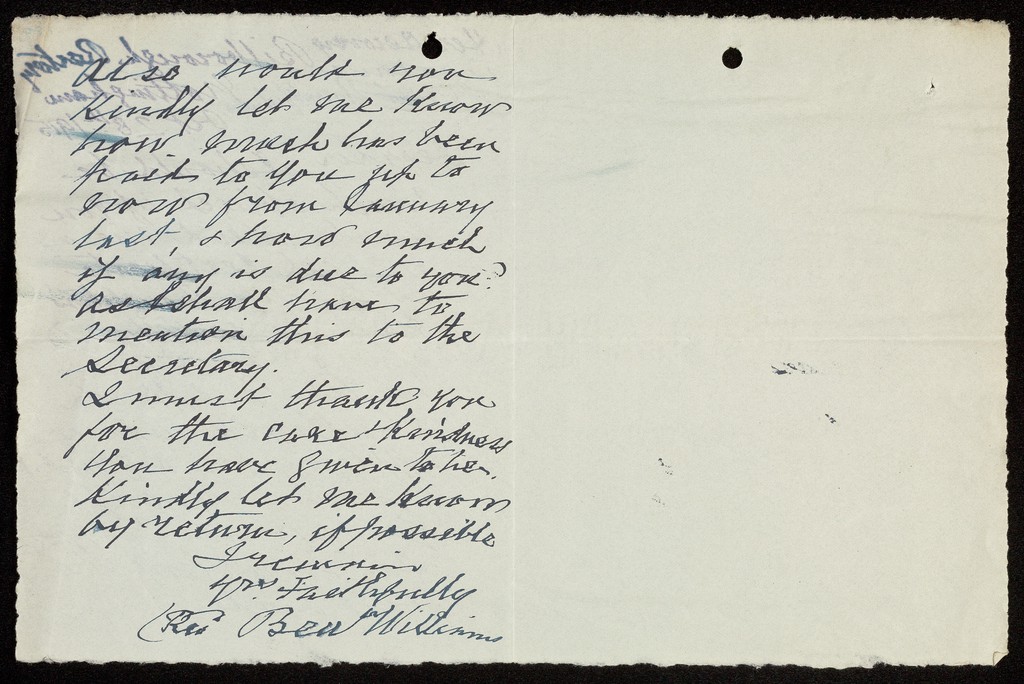 Also would you
kindly let me know
how much has been
paid to you up to
now from January
last, & how much
if any is due to you?
as I shall have to
mention this to the
Secretary.
I must thank you
for the care & kindness
you have given to her.
Kindly let me know
by return, if possible
I remain
Yrs. Faithfully
(Rev Benn Williams